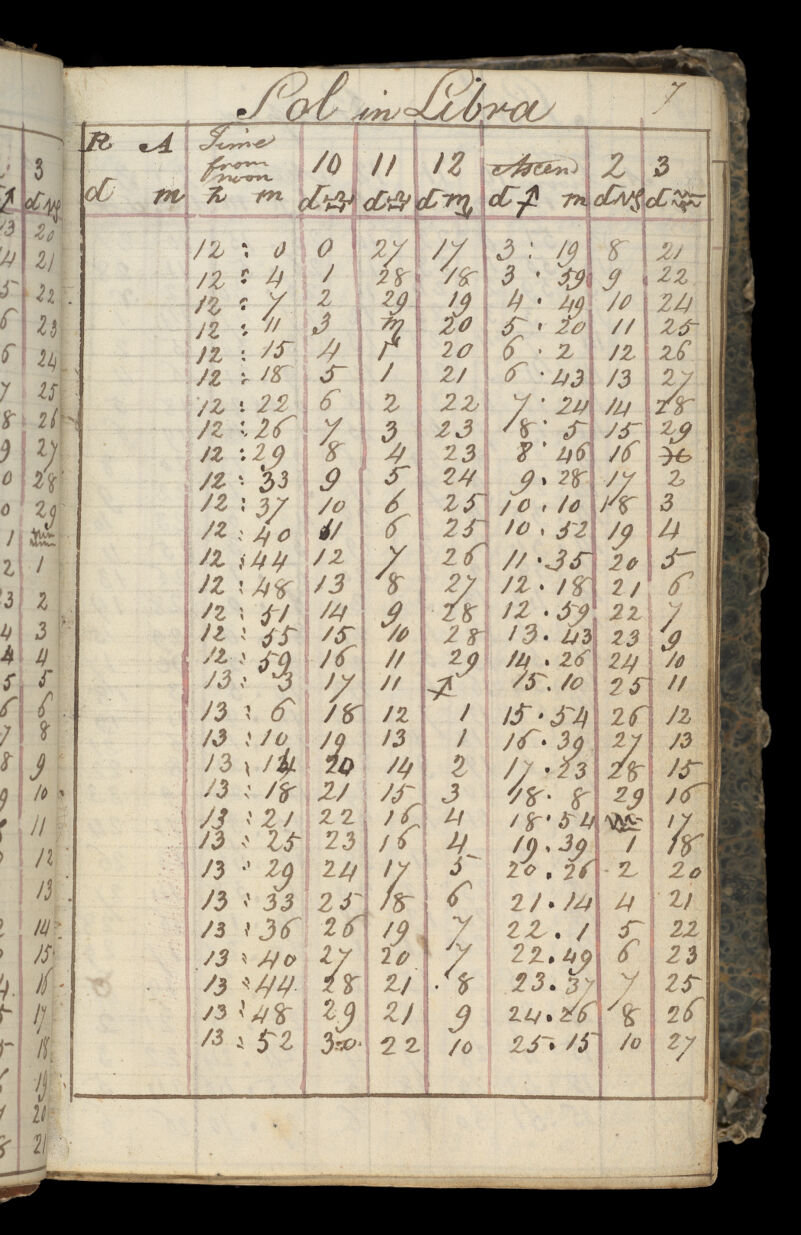 Sol in Libra 7
R A Time from noon 10 11 12 Ascen 2 3
d m h m d ♎ d ♎ d ♏ d ♐ m d ♑ d ♒
12 : 0 0 27 17 3 : 19 8 21
12 : 4 1 28 18 3 : 59 9 22
12 : 7 2 29 19 4 . 49 10 24
12 : 11 3 ♏ 20 5 . 20 11 25
12 : 15 4 1 20 6 . 2 12 26
12 : 18 5 1 21 6 . 43 13 27
12 : 22 6 2 22 7 . 24 14 28
12 : 26 7 3 23 8 . 5 15 29
12 : 29 8 4 23 8 . 46 16 ♓
12 : 33 9 5 24 9 . 28 17 2
12 : 37 10 6 25 10 . 10 18 3
12 : 40 11 6 25 10 . 52 19 4
12 : 44 12 7 26 11 . 35 20 5
12 : 48 13 8 27 12 . 18 21 6
12 : 51 14 9 28 12 . 59 22 7
12 : 55 15 10 28 13 . 43 23 9
12 : 59 16 11 29 14 . 26 24 10
13 : 3 17 11 ♐ 15 . 10 25 11
13 : 6 18 12 1 15 . 54 26 12
13 : 10 19 13 1 16 . 39 27 13
13 : 14 20 14 2 17 . 23 28 15
13 : 18 21 15 3 18 . 8 29 16
13 : 21 22 16 4 18 . 54 ♒ 17
13 : 25 23 16 4 19 . 39 1 18
13 : 29 24 17 5 20 . 26 2 20
13 : 33 25 18 6 21 . 14 4 21
13 : 36 26 19 7 22 . 1 5 22
13 : 40 27 20 7 22 . 49 6 23
13 : 44 28 21 8 23 . 37 7 25
13 : 48 29 21 9 24 . 26 8 26
13 : 52 30 22 10 25 . 15 10 27
3
♐ d ♑
13 20
14 21
5 22
6 23
6 24
7 25
8 26
9 27
0 28
0 29
1 ♒
2 1
3 2
4 3
4 4
5 5
6 6
7 8
8 9
9 10
11
12
13
14
15
4 16
5 17
5 18
19
20
8 21